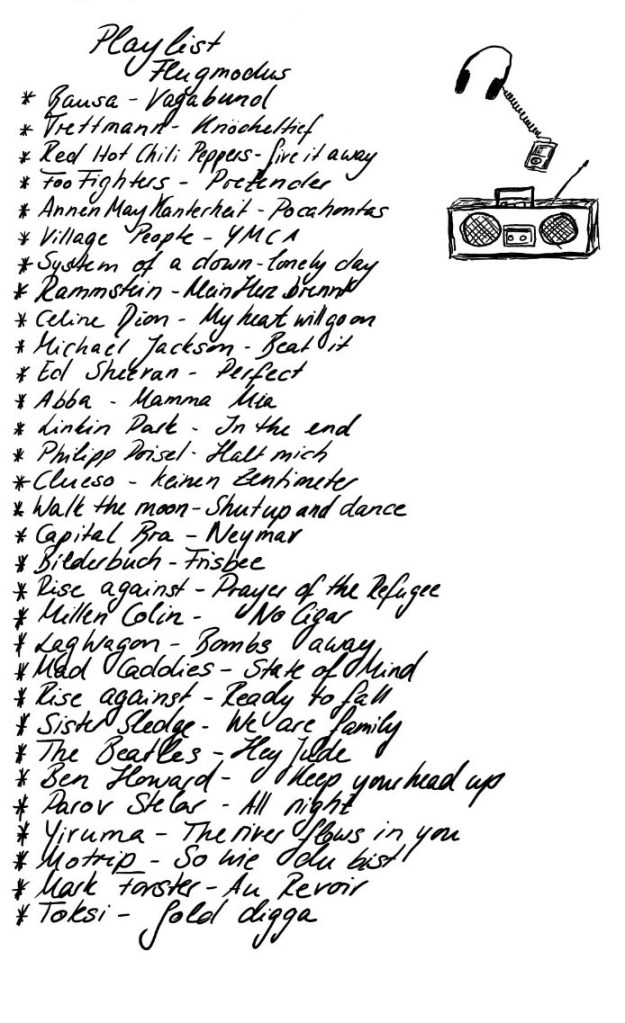 Playlist
Flugmodus
* Bausa - Vagabund
* Trettmann - Knöcheltief
* Red Hot Chili Peppers - Give it away
* Foo Fighters - Pretender
* AnnenMayKantereit - Pocahontas
* Village People - YMCA
* System of a down - lonely day
* Rammstein - Mein Herz brennt
* Celine Dion - My heat will go on
* Michael Jackson - Beat it
* Ed Sheeran - Perfect
* Abba - Mamma Mia
* Linkin Park - In the end
* Philipp Poisel - Halt mich
* Clueso - keinen Zentimeter
* Walk the moon - Shut up and dance
* Capital Bra - Neymar
* Bilderbuch - Frisbee
* Rise against - Prayer of the Refugee
* Millen Colin - No Cigar
* LagWagon - Bombs away
* Mad Caddies - State of Mind
* Rise against - Ready to fall
* Sister Sledge - We are family
* The Beatles - Hey Jude
* Ben Howard - Keep your head up
* Parov Stelar - All night
* Yiruma - The river flows in you
* Motrip - So wie du bist
* Mark Forster - Au Revoir
* Toksi - Gold digga